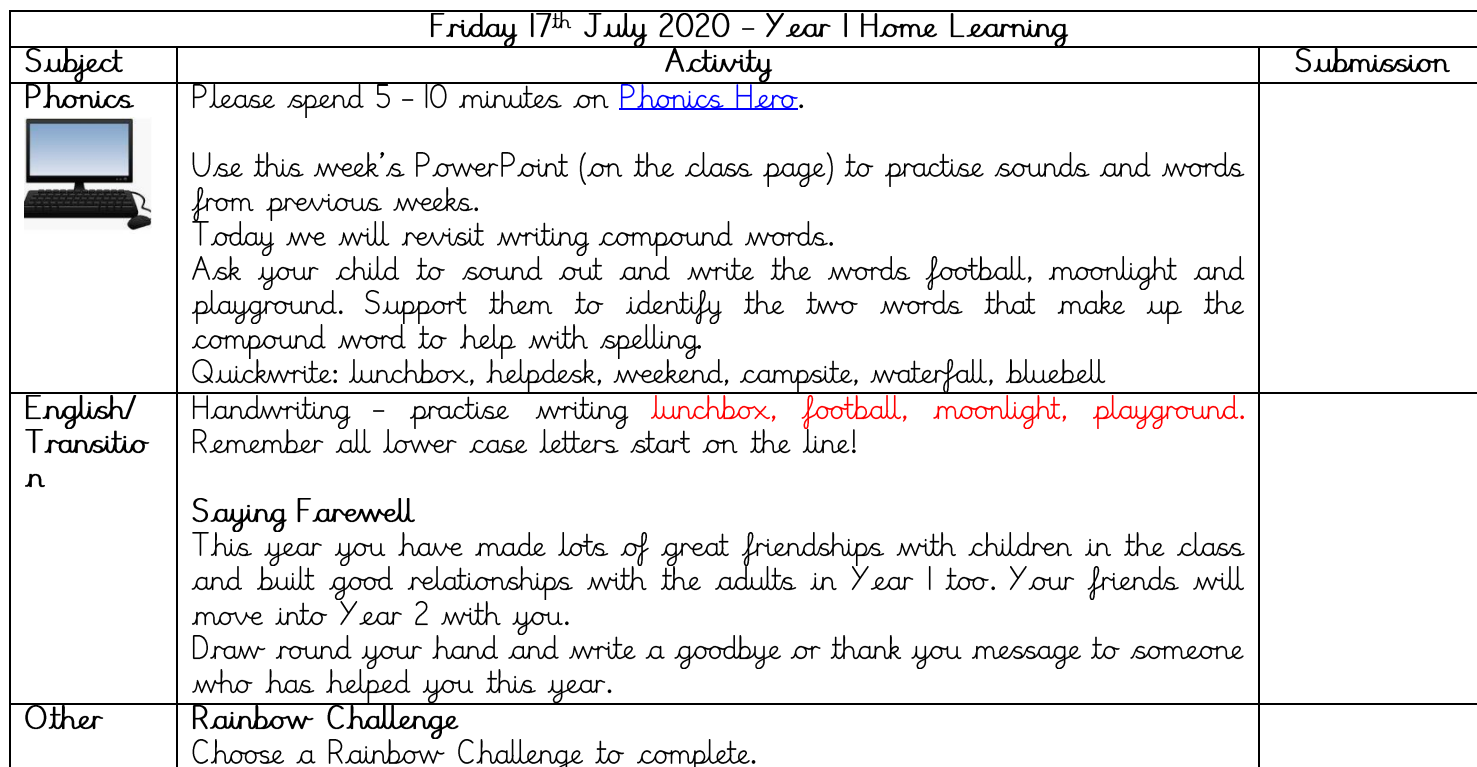 Friday 17th July 2020 – Year 1 Home Learning
Subject Activity Submission
Phonics
Please spend 5 – 10 minutes on Phonics Hero.
Use this week's PowerPoint (on the class page) to practise sounds and words
from previous weeks.
Today we will revisit writing compound words.
Ask your child to sound out and write the words football, moonlight and
playground. Support them to identify the two words that make up the
compound word to help with spelling.
Quickwrite: lunchbox, helpdesk, weekend, campsite, waterfall, bluebell
English/
Transitio
n
Handwriting – practise writing lunchbox, football, moonlight, playground.
Remember all lower case letters start on the line!
Saying Farewell
This year you have made lots of great friendships with children in the class
and built good relationships with the adults in Year 1 too. Your friends will
move into Year 2 with you.
Draw round your hand and write a goodbye or thank you message to someone
who has helped you this year.
Other
Rainbow Challenge
Choose a Rainbow Challenge to complete.